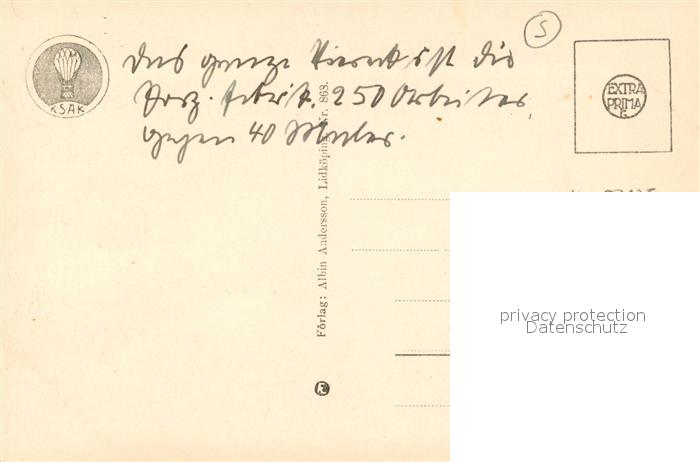 Das ganze Viereck ist die
Porz. fabrik. 250 Arbeiter,
gegen 40 Maler.
5
KSAK
EXTRA
PRIMA
Förlag: Albin Andersson, Lidköping. Nr. 863.
privacy protection
Datenschutz